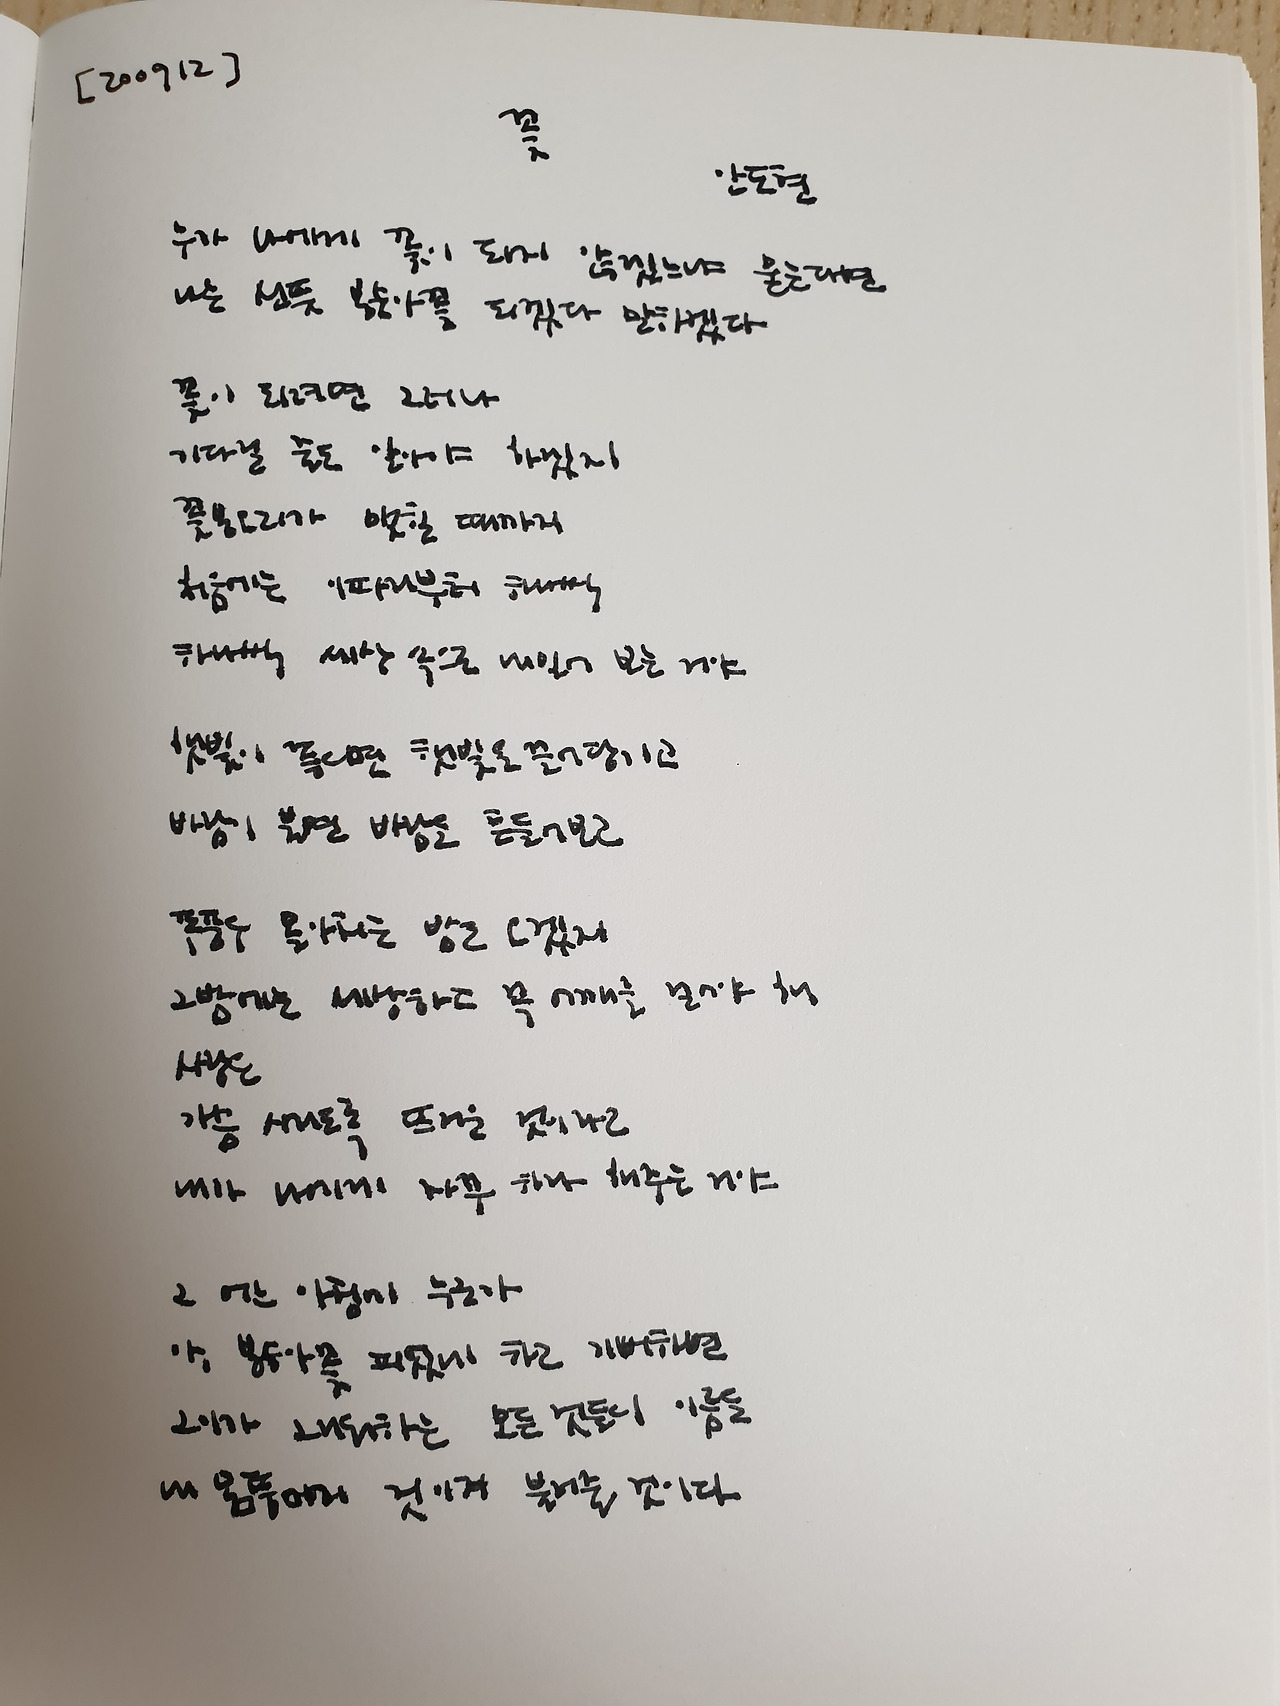 [200912]
꽃
안도현
누가 나에게 꽃이 되지 않겠느냐 묻는다면
나는 선뜻 복숭아꽃 되겠다 말하겠다
꽃이 되려면 그러나
기다릴 줄도 알아야 하겠지
꽃봉오리가 맺힐 때까지
처음에는 이파리부터 하나씩
하나씩 세상 속으로 내밀어 보는 거야
햇빛이 좋으면 햇빛을 끌어당기고
바람이 불면 바람을 흔들어보고
폭풍우 몰아치는 밤도 오겠지
그 밤에는 세상하고 꼭 어깨를 걸어야 해
사랑은
가슴 시리도록 뜨거운 것이라고
내가 나에게 자꾸 해주는 거야
그 어느 아침에 누군가
아, 복숭아꽃 피었네 하고 기뻐하면
그이가 하는 모든 것들의 이름을
내 몸뚱어리 것이라 불러줄 것이다